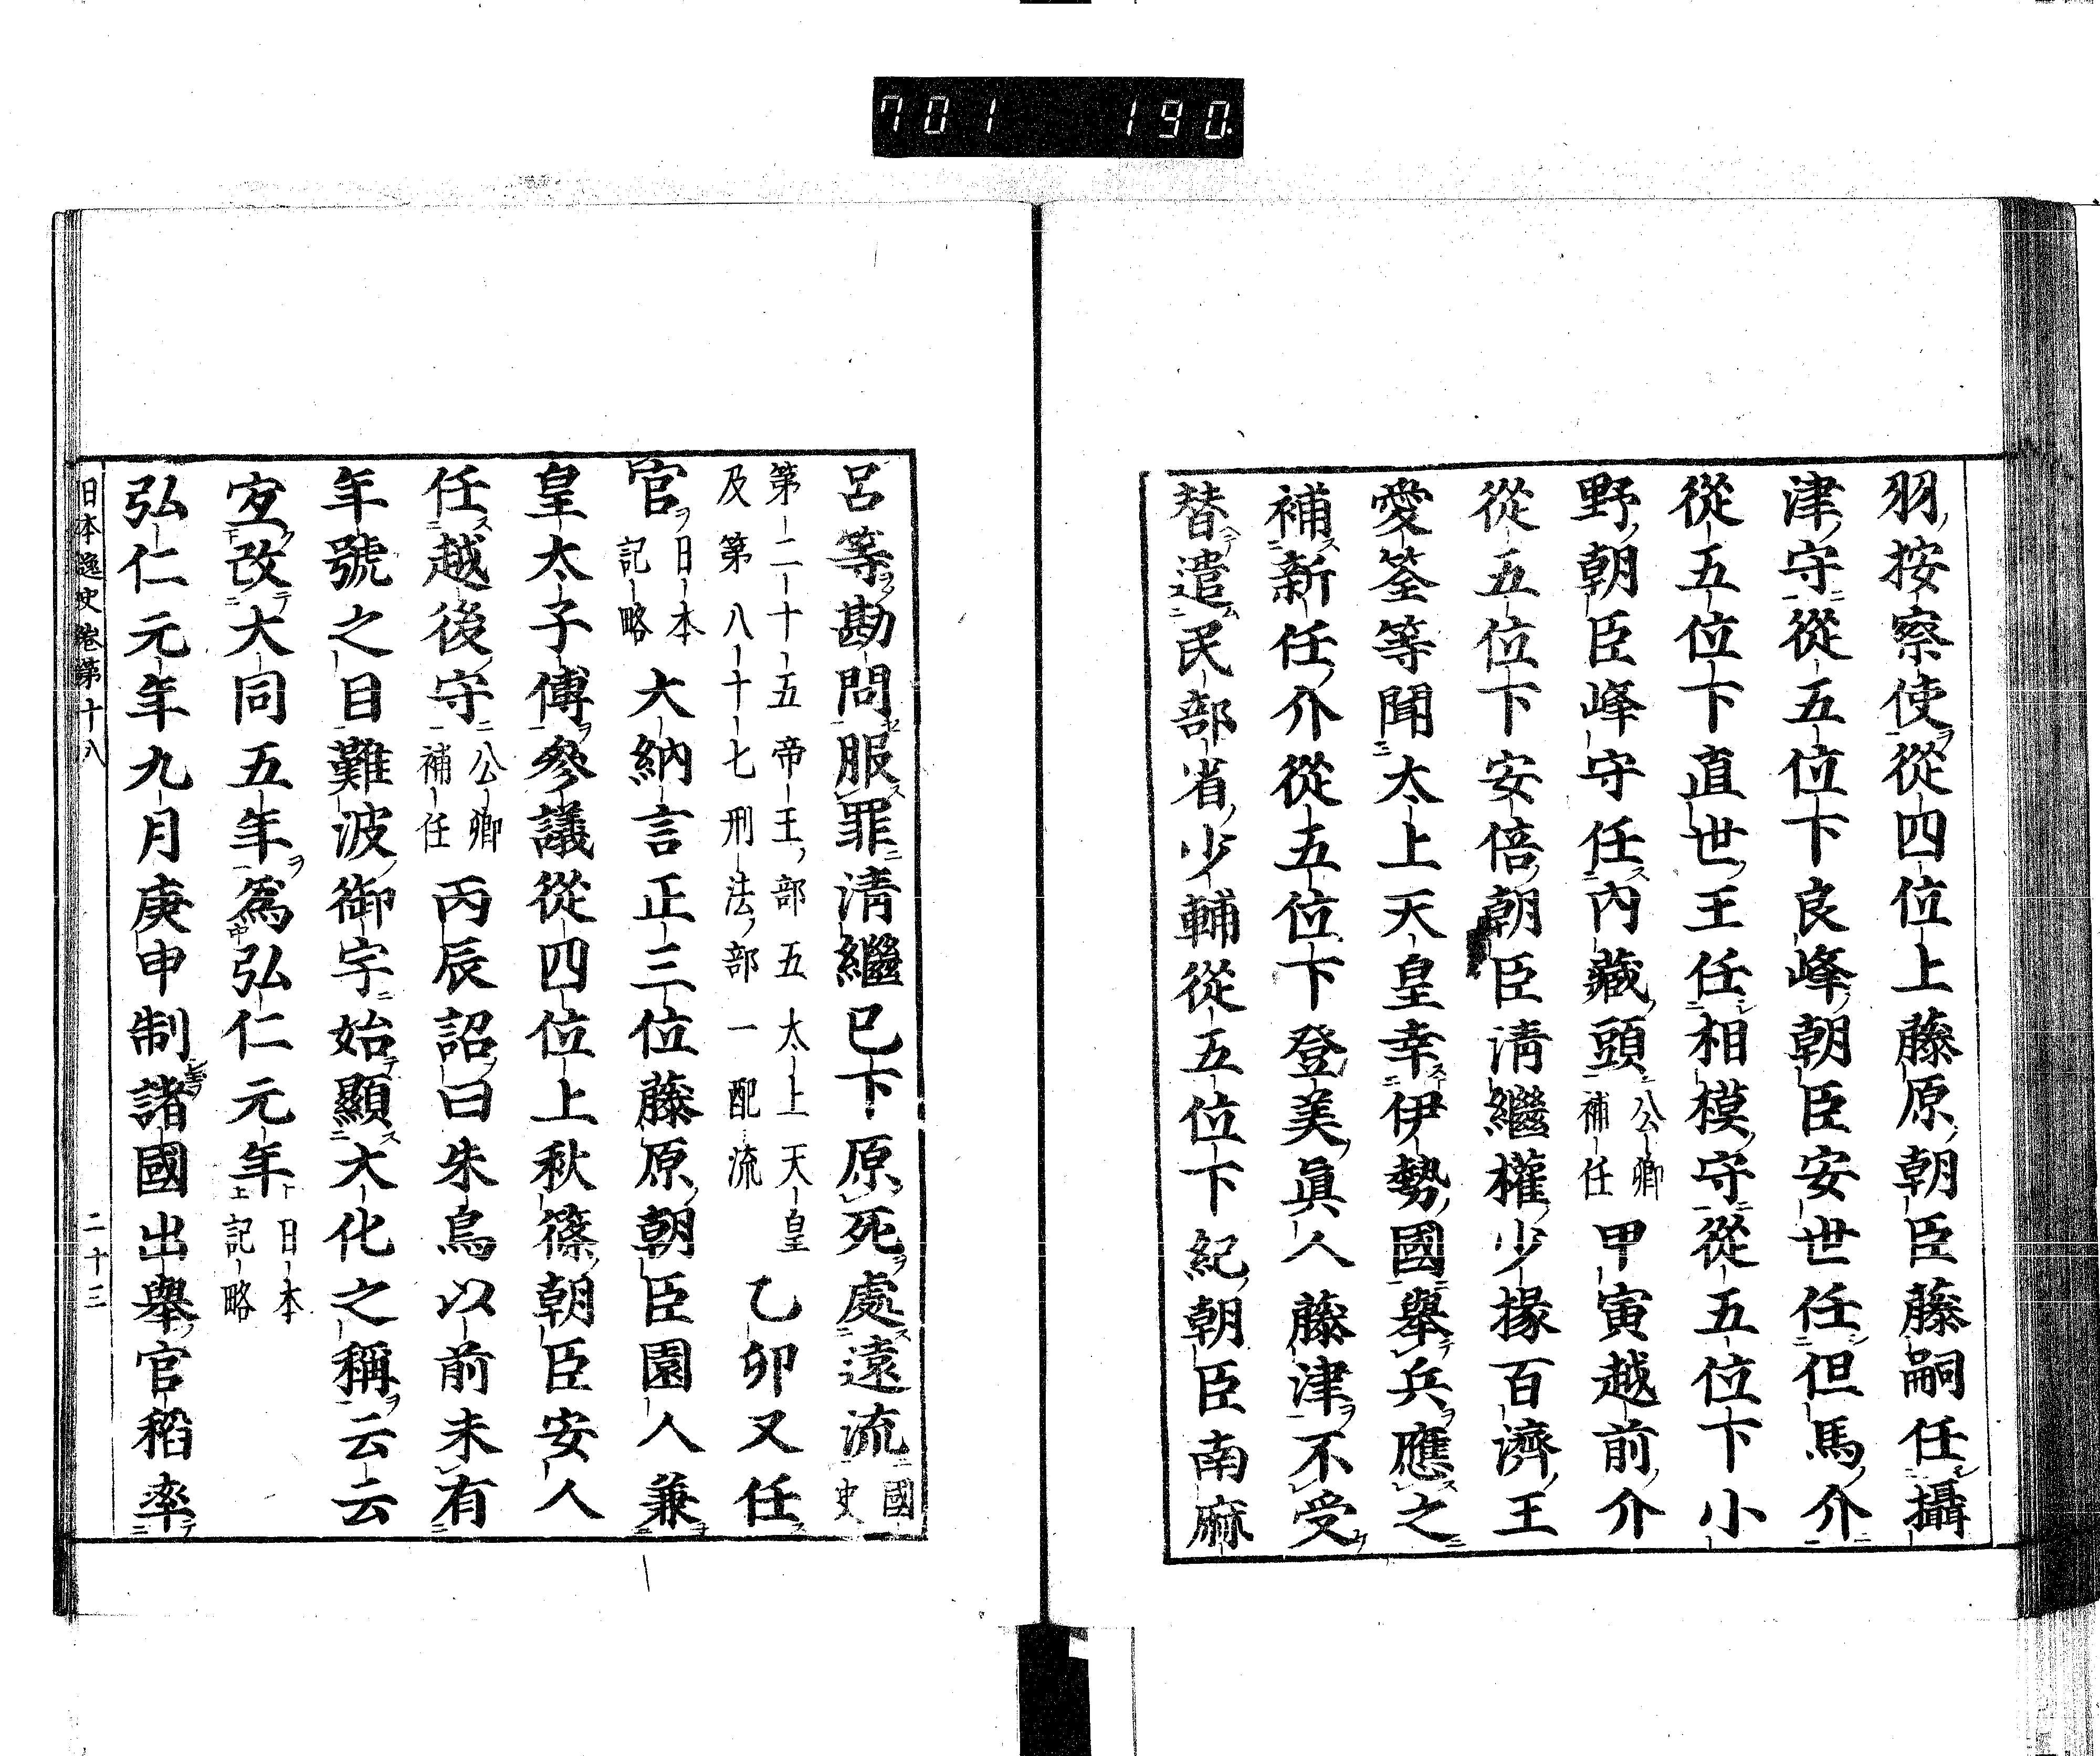 701 190
羽按察使從四位上藤原朝臣藤嗣任攝
津守從五位下良峰朝臣安世任但馬介
從五位下直世王任相模守從五位下小
野朝臣峰守任内藏頭公卿補任甲寅越前介
從五位下安倍朝臣清繼權少掾百濟王
愛筌等聞太上天皇幸伊勢國舉兵應之
補新任介從五位下登美眞人藤津不受
替遣民部省少輔從五位下紀朝臣南麻
呂等勘問服罪清繼已下原死處遠流國史
第二十五帝王部五太上天皇及第八十七刑法部一配流乙卯又任
官日本記略大納言正三位藤原朝臣園人兼
皇太子傅參議從四位上秋篠朝臣安人
任越後守公卿補任丙辰詔曰朱鳥以前未有
年號之目難波御宇始顯大化之稱云云
宜改大同五年爲弘仁元年日本記略
弘仁元年九月庚申制諸國出舉官稻率
日本逸史卷第十八 二十三